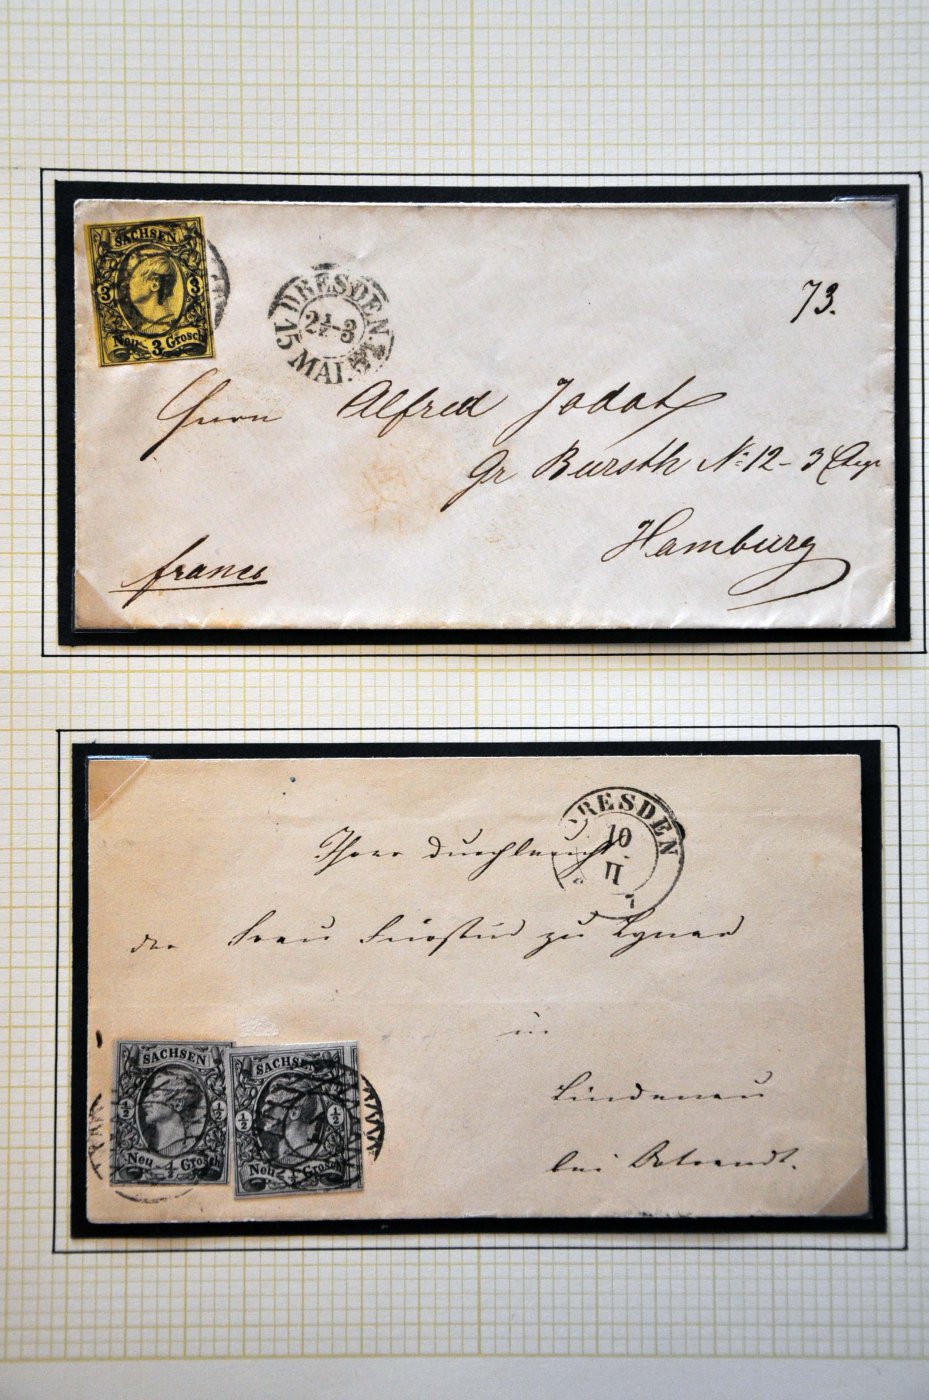 SACHSEN
3 3
Neu 3 Grosch
DRESDEN
2½-3
15 MAI.
73.
Herrn Alfred Jodot
Gr Bursth No 12 - 3
Hamburg
franco
DRESDEN
10
II
Ihrer Durchlaucht
der Frau Fürstin zu Lynar
in
Lindenau
bei Ortrandt.
SACHSEN
½ ½
Neu ½ Grosch
SACHSEN
½ ½
Neu ½ Grosch